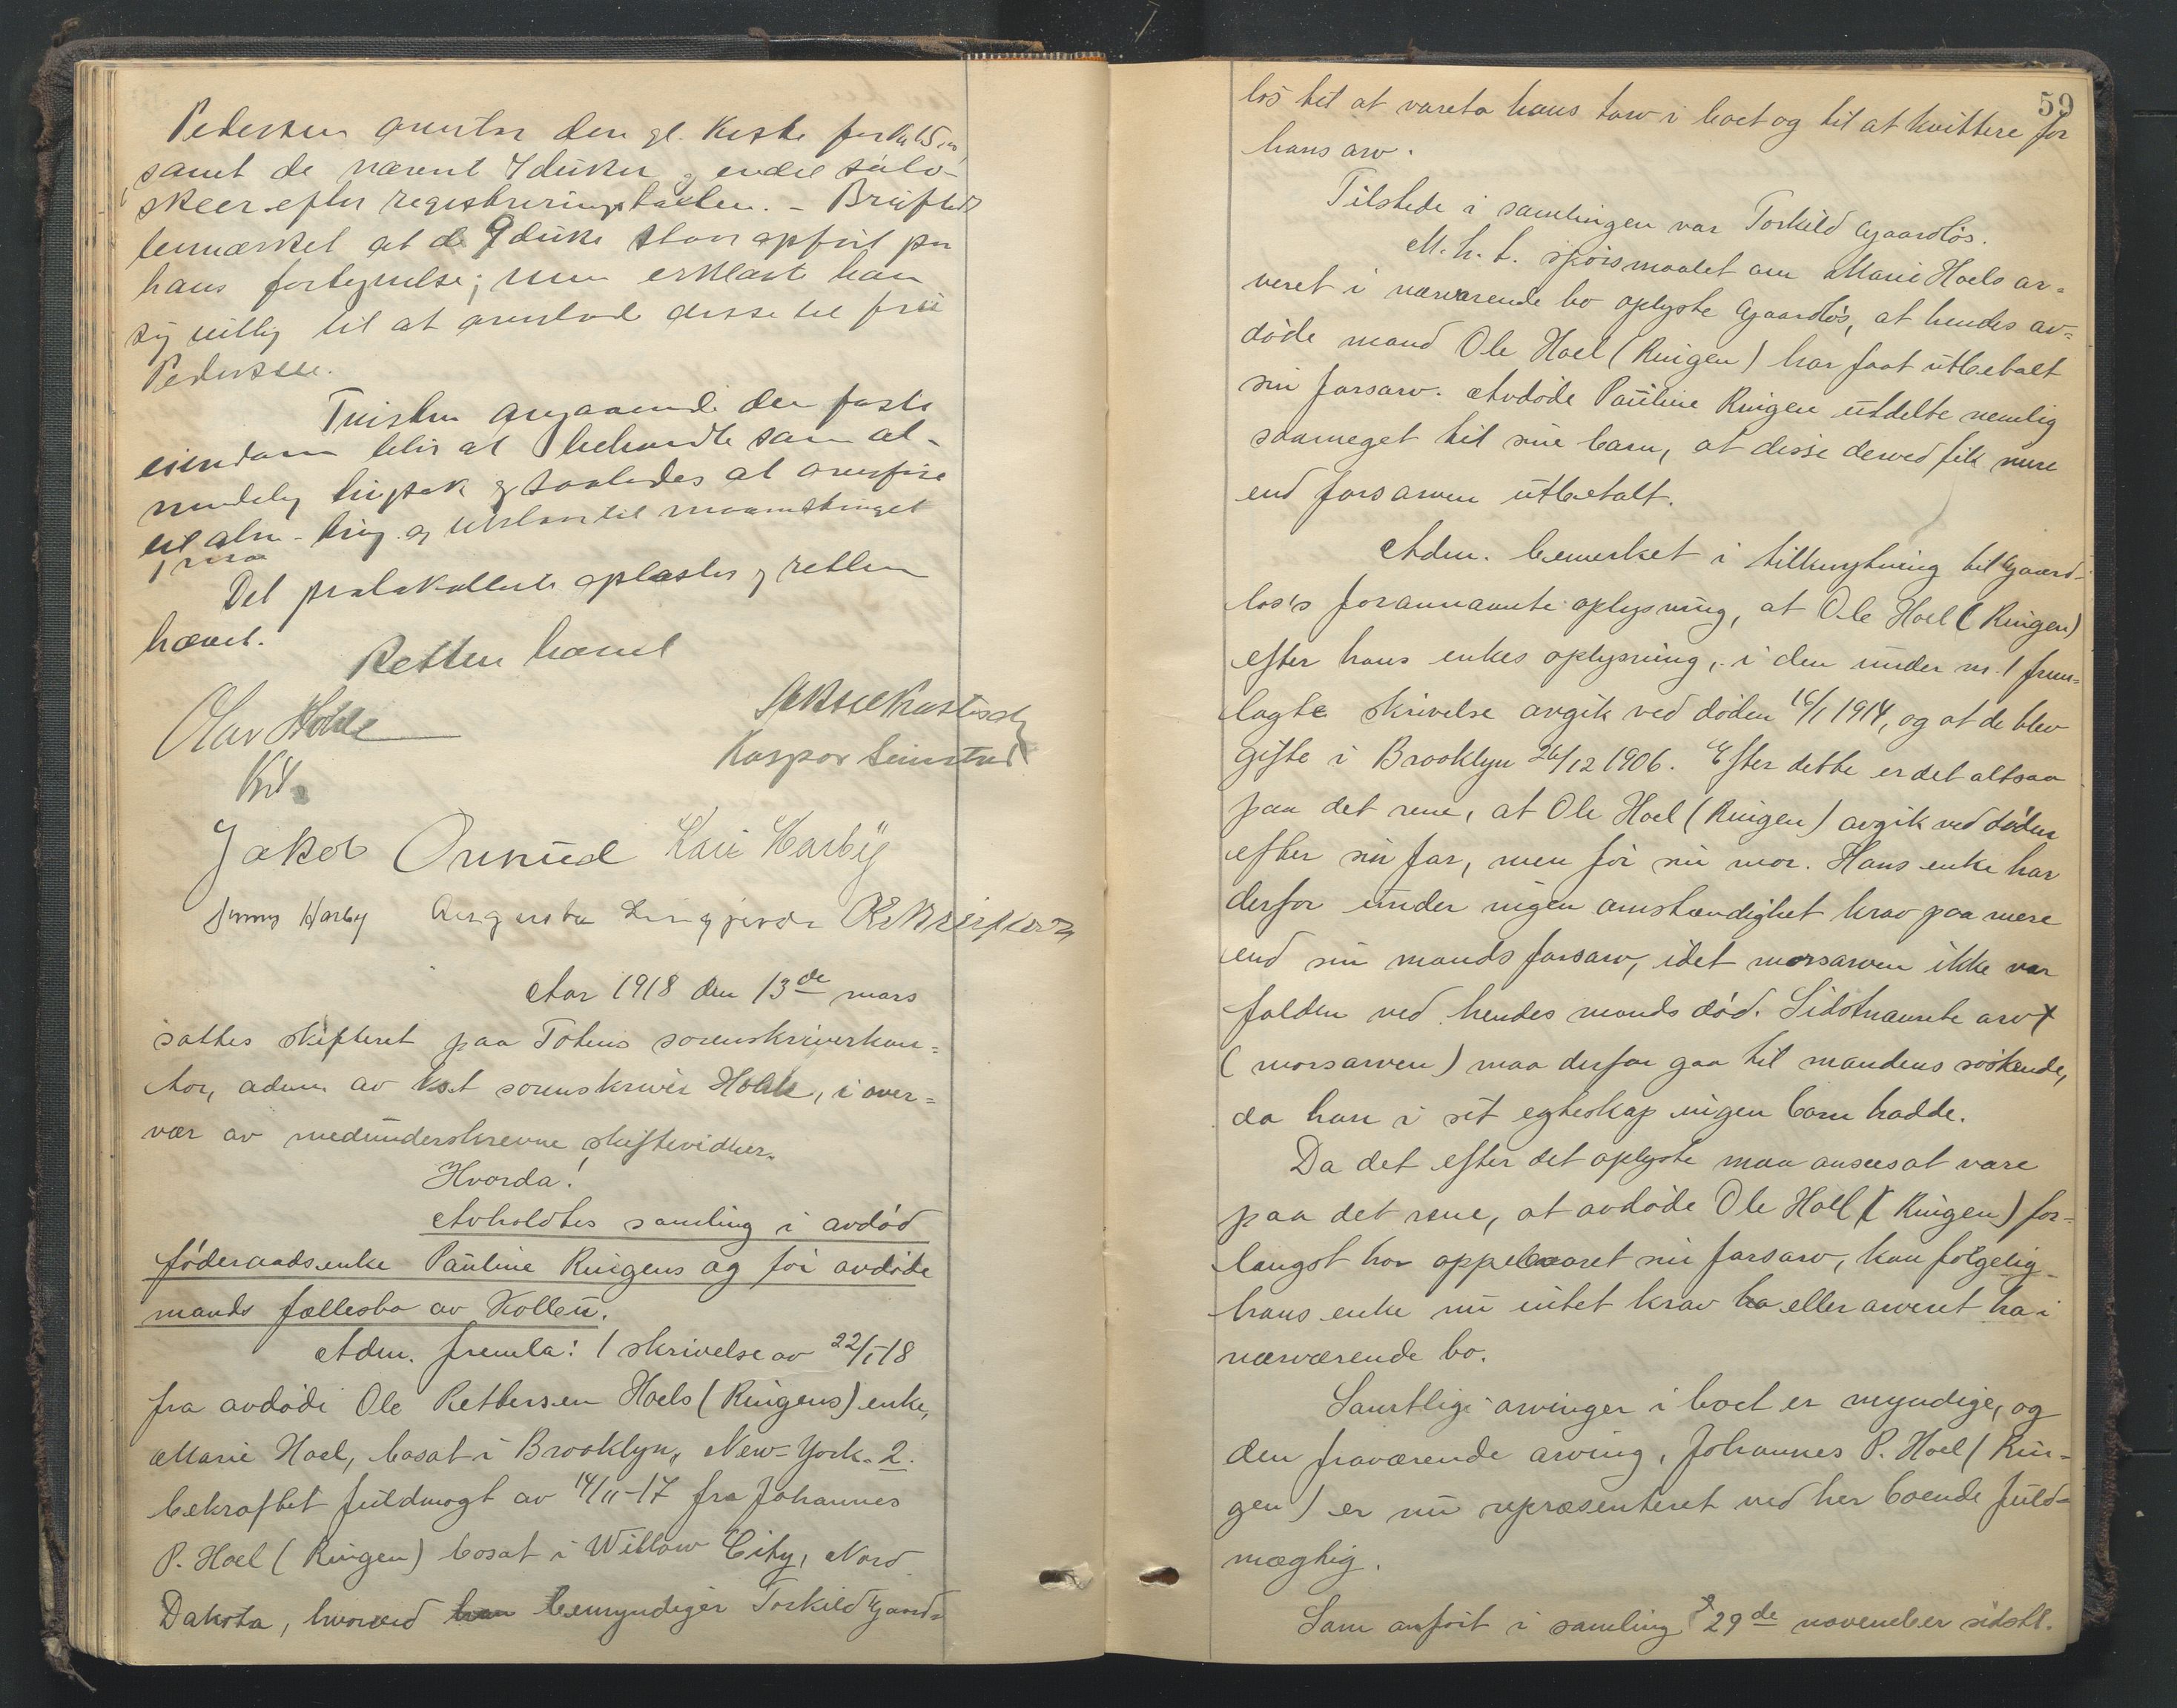 Pedersen overtar den gl. kiste for kr 15.00
samt de nævnt 7 duker og endel sølv-
skeer efter registreringstaksten. –
bemærket at de 9 duke staar opført paa
hans fortegnelse; men erklærte han
sig villig til at overlade disse til fru
Pedersen.
Tvisten angaaende den faste
eiendom blir at behandle som al-
mindelig tvistesak og saaledes at overføre
til alm. ting og utsluttes til maanedstinget
Det protokollerte oplæstes og retten
hævet.
Retten hævet
Olav Holck
Kst.
Kaspar Seirstad
Jakob Onrud Kari Harby
Jenny Harby Augusta
Aar 1918 den 13de mars
sattes skifteret paa Totens sorenskriverkon=
tor, adm. av kst sorenskriver Holck, i over=
vær av medunderskrevne skiftevidner.
Hvorda!
Avholdtes samling i avdød
føderaadsenke Pauline Ringens og før avdøde
mands fællesbo av Kolbu.
Adm. fremla: 1 skrivelse av 22/1-18
fra avdøde Ole Pettersen Hoels (Ringens) enke,
Marie Hoel, bosat i Brooklyn, New-York. 2.
bekræftet fuldmagt av 14/11-17 fra Johannes
P. Hoel (Ringen) bosat i Willow City, Nord
Dakota, hvorved han bemyndiger Torkild Gaard=
59
løs til at vareta hans tarv i boet og til at kvittere for
hans arv.
Tilstede i samlingen var Torkild Gaardløs.
M. h. t. spørsmaalet om Marie Hoels ar=
veret i nærværende bo oplyste Gaardløs, at hendes av=
døde mand Ole Hoel (Ringen) har faat utbetalt
sin farsarv. Avdøde Pauline Ringen utdelte nemlig
saameget til sine barn, at disse derved fik mere
end farsarven utbetalt.
Adm. bemerket i tilknytning til Gaard-
løs's forannævnte oplysning, at Ole Hoel (Ringen)
efter hans enkes oplysning, i den under nr. 1 frem=
lagte skrivelse avgik ved døden 16/1 1914, og at de blev
gifte i Brooklyn 26/12 1906. Efter dette er det altsaa
paa det rene, at Ole Hoel (Ringen) avgik ved døden
efter sin far, men før sin mor. Hans enke har
derfor under ingen omstændighet krav paa mere
end sin mands farsarv, idet morsarven ikke var
falden ved hendes mands død. Sidstnævnte arv
(morsarven) maa derfor gaa til mandens søskende,
da han i sit egteskap ingen barn hadde.
Da det efter det oplyste maa ansees at være
paa det rene, at avdøde Ole Hoel (Ringen) for=
længst har oppebaaret sin farsarv, kan følgelig
hans enke nu intet krav eller arveret ha i
nærværende bo.
Samtlige arvinger i boet er myndige, og
den fraværende arving, Johannes P. Hoel (Rin-
gen) er nu repræsenteret ved her boende fuld=
mægtig.
Som anført i samling 29de november sidstl.